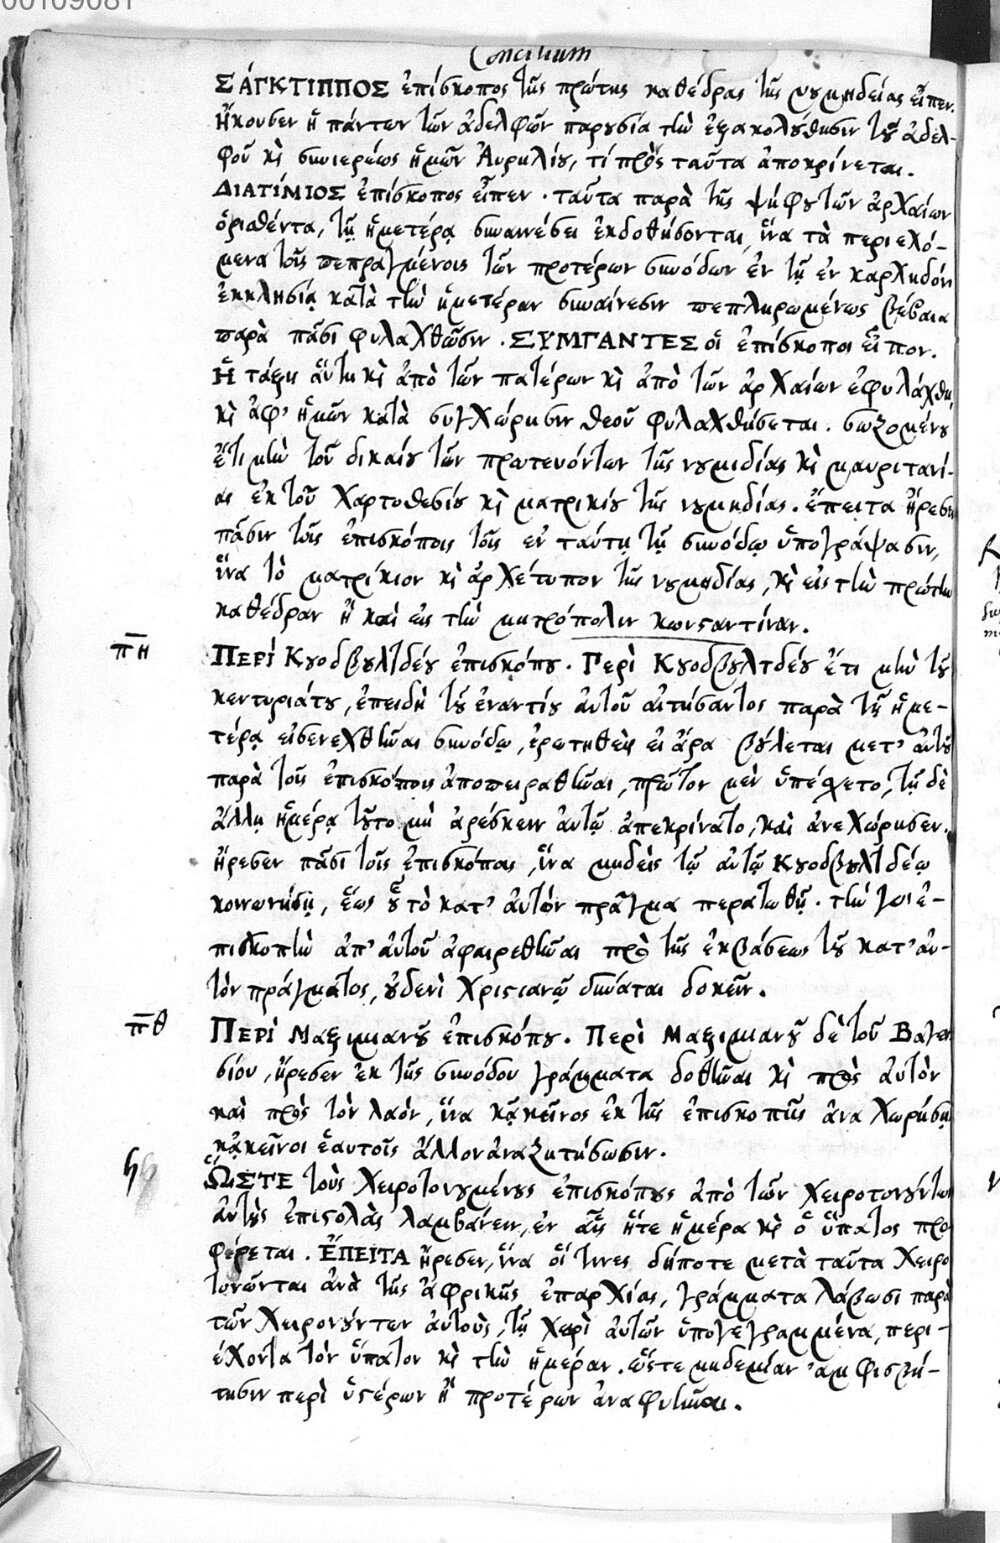 00109081
Concilium
ΣΆΓΚΤΙΠΠΟΣ ἐπίσκοπος τῆς πρώτης καθέδρας τῆς νουμηδείας εἶπεν.
Ἤκουσεν ἡ πάντων τῶν ἀδελφῶν παρουσία τὴν ἐξακολούθησιν τοῦ ἀδελ-
φοῦ κὶ συνιερέως ἡμῶν Αὐρηλίου, τί πρὸς ταῦτα ἀποκρίνεται.
ΔΙΑΤΊΜΙΟΣ ἐπίσκοπος εἶπεν. ταῦτα παρὰ τῆς ψήφου τῶν ἀρχαίων
ὁρισθέντα, τῇ ἡμετέρᾳ συναινέσει ἐκδοθήσονται, ἵνα τὰ περιεχό-
μενα τοῖς πεπραγμένοις τῶν προτέρων συνόδων ἐν τῇ ἐν καρχηδόνι
ἐκκλησίᾳ κατὰ τὴν ἡμετέραν συναίνεσιν πεπληρωμένως βέβαια
παρὰ πᾶσι φυλαχθῶσιν. ΣΥΜΠΑΝΤΕΣ οἱ ἐπίσκοποι εἶπον.
Ἡ τάξις αὕτη κὶ ἀπὸ τῶν πατέρων κὶ ἀπὸ τῶν ἀρχαίων ἐφυλάχθη,
κὶ ἀφ' ἡμῶν κατὰ συγχώρησιν θεοῦ φυλαχθήσεται. σωζομένου
ἔτι μὴν τοῦ δικαίου τῶν πρωτευόντων τῆς νουμιδίας κὶ μαυριτανί-
ας ἐκ τοῦ χαρτοθεσίου κὶ ματρικίου τῆς νουμηδίας. ἔπειτα ἤρεσεν
πᾶσιν τοῖς ἐπισκόποις τοῖς ἐν ταύτῃ τῇ συνόδῳ ὑπογράψασιν,
ἵνα τὸ ματρίκιον κὶ ἀρχέτυπον τῆς νουμηδίας, κὶ εἰς τὴν πρώτην
καθέδραν ᾖ καὶ εἰς τὴν μητρόπολιν κωνσταντίναν.
πη ΠΕΡῚ Κουοδβουλτδέου ἐπισκόπου. Περὶ Κουοδβουλτδέου ἔτι μὴν τοῦ
κεντουριάτου, ἐπειδὴ τοῦ ἐναντίου αὐτοῦ αἰτήσαντος παρὰ τῇ ἡμε-
τέρᾳ εἰσενεχθῆναι συνόδῳ, ἐρωτηθεὶς εἰ ἄρα βούλεται μετ' αὐτοῦ
παρὰ τοῖς ἐπισκόποις ἀποπειραθῆναι, πρῶτον μὲν ὑπέσχετο, τῇ δὲ
ἄλλῃ ἡμέρᾳ τοῦτο μὴ ἀρέσκειν αὐτῷ ἀπεκρίνατο, καὶ ἀνεχώρησεν.
ἤρεσεν πᾶσι τοῖς ἐπισκόποις, ἵνα μηδεὶς τῷ αὐτῷ Κουοδβουλτδέῳ
κοινωνήσῃ, ἕως οὗ τὸ κατ' αὐτὸν πρᾶγμα περατωθῇ. τὴν γὰρ ἐ-
πισκοπὴν ἀπ' αὐτοῦ ἀφαιρεθῆναι πρὸ τῆς ἐκβάσεως τοῦ κατ' αὐ-
τὸν πράγματος, οὐδενὶ Χριστιανῷ δύναται δοκεῖν.
πθ ΠΕΡῚ Μαξιμιανοῦ ἐπισκόπου. Περὶ Μαξιμιανοῦ δὲ τοῦ Βαγεν
σίου, ἤρεσεν ἐκ τῆς συνόδου γράμματα δοθῆναι κὶ πρὸς αὐτὸν
καὶ πρὸς τὸν λαὸν, ἵνα κἀκεῖνος ἐκ τῆς ἐπισκοπῆς ἀναχωρήσῃ
κἀκεῖνοι ἑαυτοῖς ἄλλον ἀναζητήσωσιν.
ὭΣΤΕ τοὺς χειροτονουμένους ἐπισκόπους ἀπὸ τῶν χειροτονούντων
αὐτοὺς ἐπιστολὰς λαμβάνειν, ἐν αἷς ἥτε ἡμέρα κὶ ὁ ὕπατος προ
φέρεται. ἜΠΕΙΤΑ ἤρεσεν, ἵνα οἵτινες δήποτε μετὰ ταῦτα χειρο
τονῶνται ἀνὰ τὰς ἀφρικῆς ἐπαρχίας, γράμματα λάβωσι παρὰ
τῶν χειρονούντων αὐτοὺς, τῇ χειρὶ αὐτῶν ὑπογεγραμμένα, περι-
έχοντα τὸν ὕπατον κὶ τὴν ἡμέραν. ὥστε μηδεμίαν ἀμφισβή-
τησιν περὶ ὑστέρων ἢ προτέρων ἀναφυῆναι.